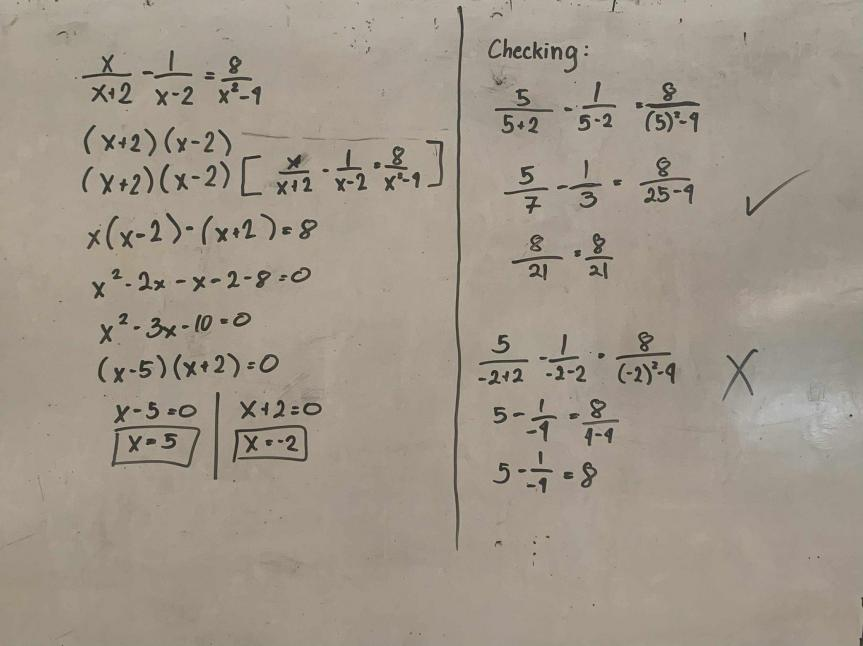 x/(x+2) - 1/(x-2) = 8/(x²-4)
(x+2)(x-2)
(x+2)(x-2) [ x/(x+2) - 1/(x-2) = 8/(x²-4) ]
x(x-2) - (x+2) = 8
x² - 2x - x - 2 - 8 = 0
x² - 3x - 10 = 0
(x-5)(x+2) = 0
x-5=0 | x+2=0
x=5 | x=-2
Checking:
5/(5+2) - 1/(5-2) = 8/((5)²-4)
5/7 - 1/3 = 8/(25-4) ✓
8/21 = 8/21
5/(-2+2) - 1/(-2-2) = 8/((-2)²-4) X
5 - 1/-4 = 8/(4-4)
5 - 1/-4 = 8